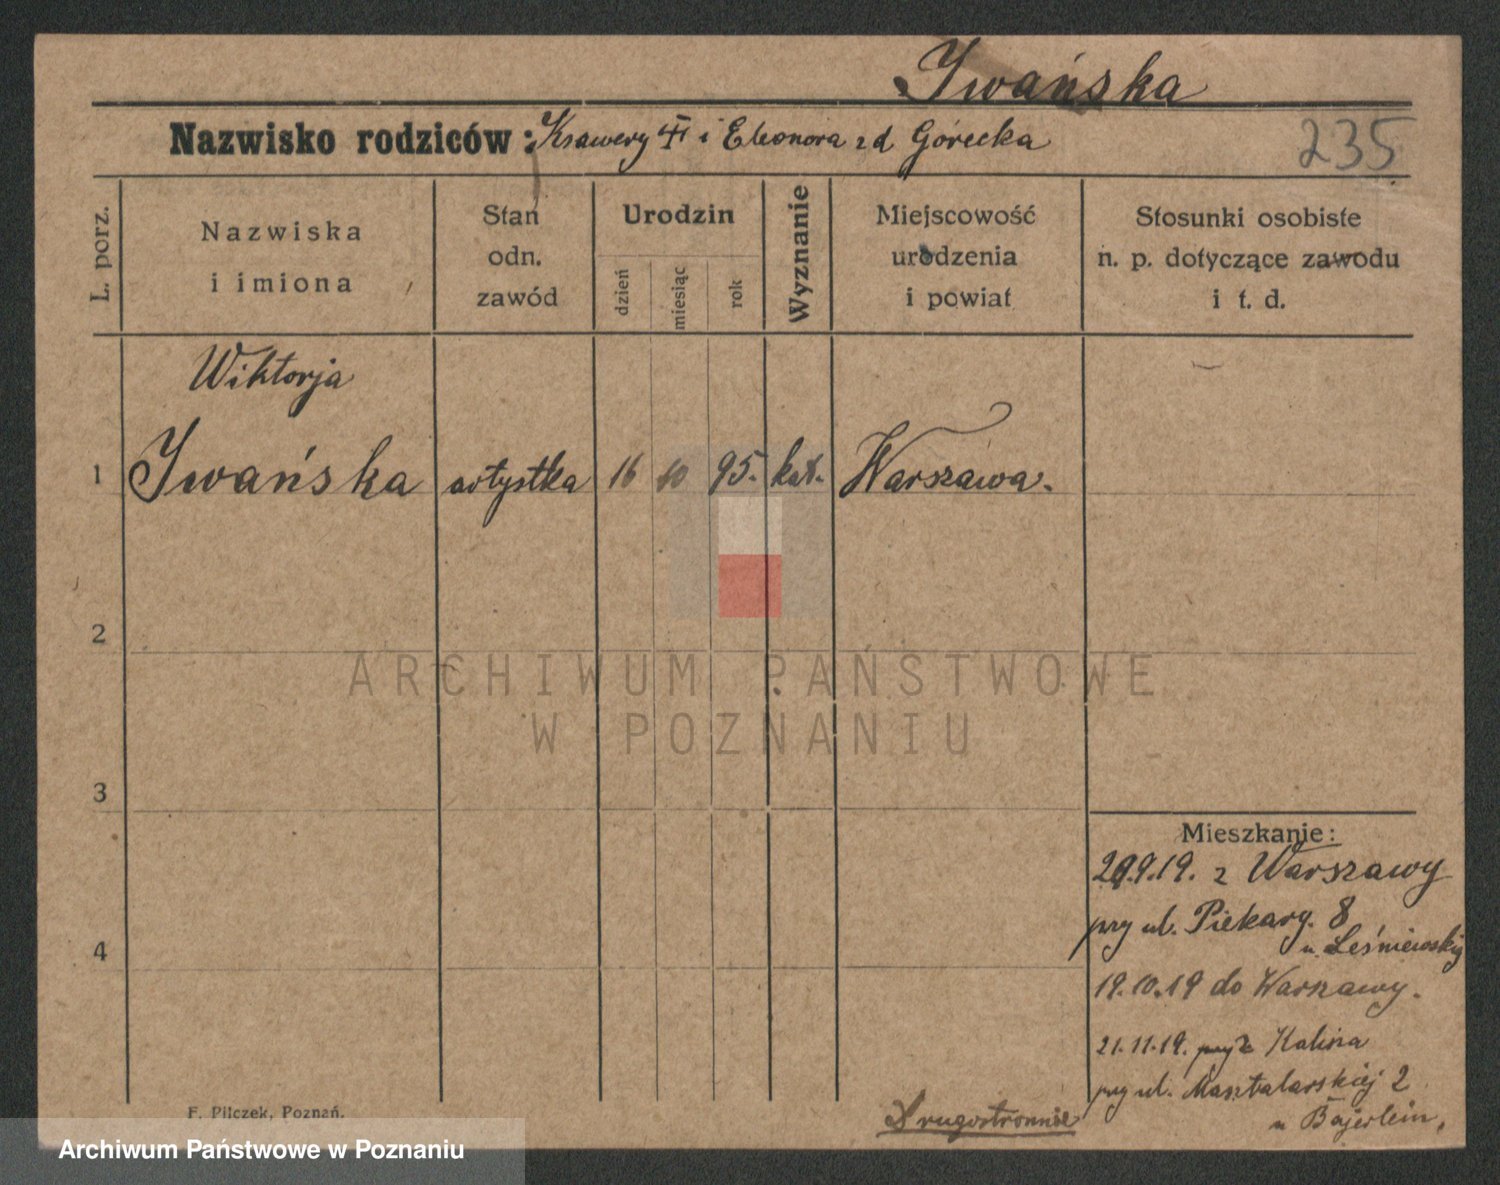 Iwańska
Nazwisko rodziców: Ksawery i Eleonora zd Górecka
235
L. porz.
Nazwiska
i imiona
Stan
odn.
zawód
Urodzin
dzień
miesiąc
rok
Wyznanie
Miejscowość
urodzenia
i powiat
Stosunki osobiste
n. p. dotyczące zawodu
i t. d.
Wiktorja
1 Iwańska artystka 16 10 95. kat. Warszawa.
2
ARCHIWUM PAŃSTWOWE
W POZNANIU
3
Mieszkanie:
9.19. z Warszawy
przy ul. Piekary. 8
u Leśniewskiej
4
19.10.19 do Warszawy.
21.11.19. Kalisza
przy ul. Masztalarskiej 2
u Bajerlein.
Drugostronnie
F. Pilczek, Poznań.
Archiwum Państwowe w Poznaniu